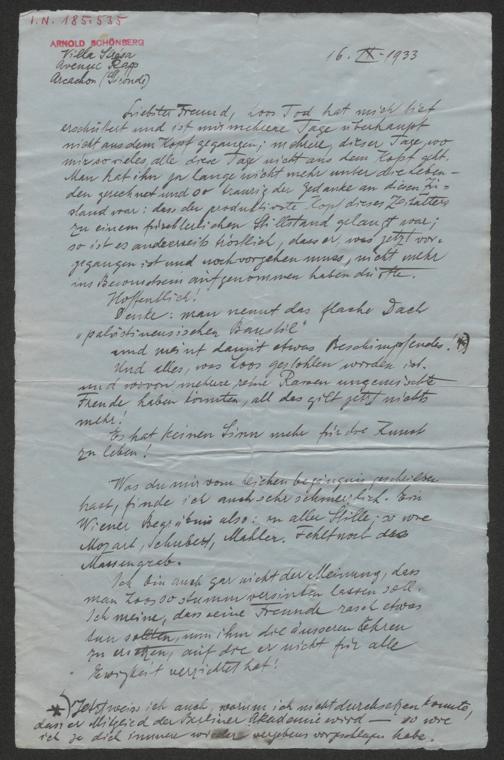 I.N. 185.535
ARNOLD SCHÖNBERG
Villa Stresa
Avenue Rapp
Arcachon (Gironde)
16. IX. 1933
Liebster Freund, Loos Tod hat mich tief
erschüttert und ist mir mehrere Tage überhaupt
nicht aus dem Kopf gegangen; mehrere, dieser Tage, wo
mir so vieles, alle diese Tage nicht aus dem Kopf geht.
Man hat ihn ja lange nicht mehr unter die Leben-
den gerechnet und so traurig der Gedanke an diesen Zu-
stand war: dass der produktivste Kopf dieses Zeitalters
zu einem fürchterlichen Stillstand gelangt war;
so ist es anderseits tröstlich, dass er, was jetzt vor-
gegangen ist und noch vorgehen muss, nicht mehr
ins Bewusstsein aufgenommen haben dürfte.
Hoffentlich!
Denke: man nennt das flache Dach
„palästinensischer Baustil"
und meint damit etwas Beschimpfendes! *)
Und alles, was Loos gestohlen worden ist
und wovon mehrere reine Rassen ungemischte
Freude haben könnten, all das gilt jetzt nichts
mehr!
Es hat keinen Sinn mehr für die Kunst
zu leben!
Was du mir vom Leichenbegängnis geschrieben
hast, finde ich auch sehr schmerzlich. Ein
Wiener Begräbnis also: in aller Stille; so wie
Mozart, Schubert, Mahler. Fehlt noch das
Massengrab.
Ich bin auch gar nicht der Meinung, dass
man Loos so stumm versinken lassen soll.
Ich meine, dass seine Freunde rasch etwas
tun sollten, um ihm die äusseren Ehren
zu ersetzen, auf die er nicht für alle
Ewigkeit verzichtet hat!
*) Jetzt weiss ich auch, warum ich nicht durchsetzen konnte,
dass er Mitglied der Berliner Akademie wird — so wie
ich ja dich immer wieder vergebens vorgeschlagen habe.